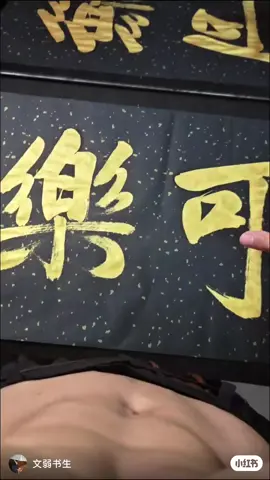 樂可
文弱书生
小红书